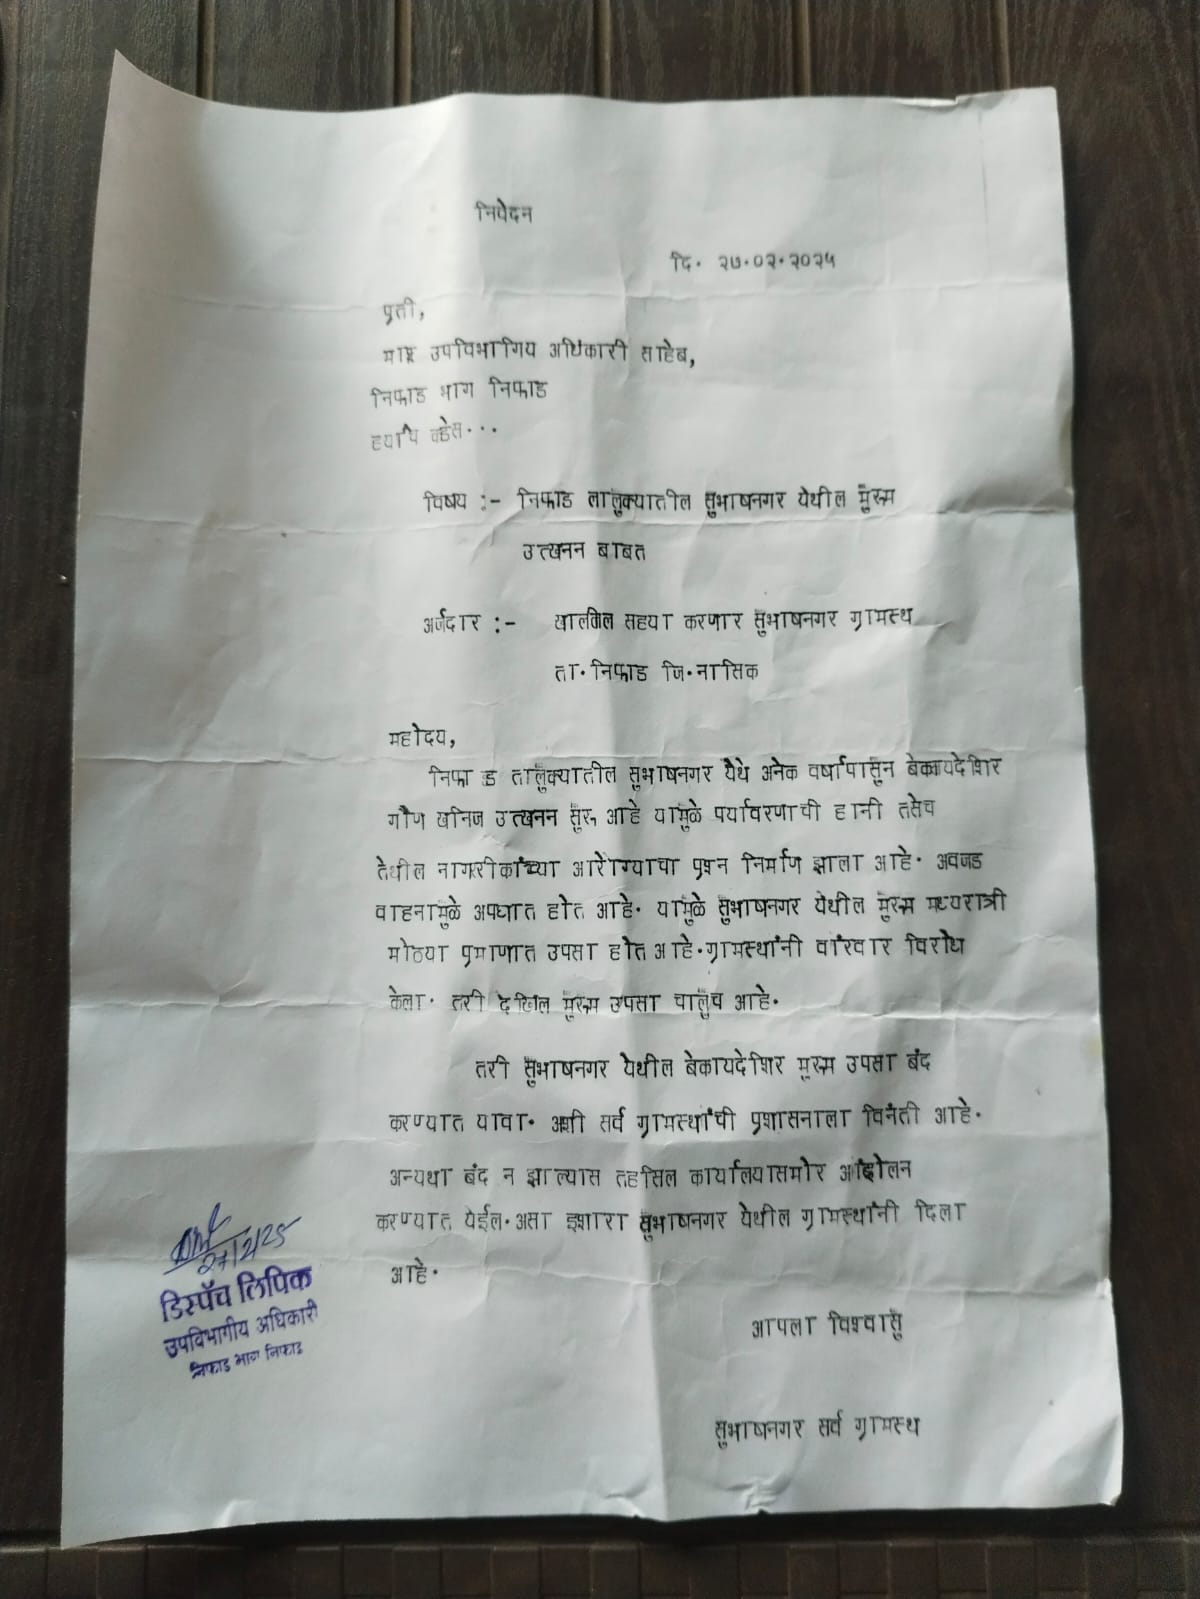 निवेदन
दि. २७.०२.२०२५
प्रती,
उपविभागिय अधिकारी साहेब,
निफाड भाग निफाड
विषय :- निफाड तालुक्यातील सुभाषनगर येथील मुरुम
उत्खनन बाबत
अर्जदार :- खालील सहया करणार सुभाषनगर ग्रामस्थ
ता.निफाड जि.नासिक
महोदय,
निफाड तालुक्यातील सुभाषनगर येथे अनेक वर्षापासुन बेकायदेशिर
गौण खनिज उत्खनन सुरु आहे यामुळे पर्यावरणाची हानी तसेच
तेथील नागरीकांच्या आरोग्याचा प्रश्न निर्माण झाला आहे. अवजड
वाहनामुळे अपघात होत आहे. यामुळे सुभाषनगर येथील मुरुम मध्यरात्री
मोठया प्रमाणात उपसा होत आहे.ग्रामस्थांनी वारंवार विरोध
केला. तरी देखिल मुरुम उपसा चालुच आहे.
तरी सुभाषनगर येथील बेकायदेशिर मुरुम उपसा बंद
करण्यात यावा. अशी सर्व ग्रामस्थांची प्रशासनाला विनंती आहे.
अन्यथा बंद न झाल्यास तहसिल कार्यालयासमोर आंदोलन
करण्यात येईल.असा इशारा सुभाषनगर येथील ग्रामस्थांनी दिला
आहे.
आपला विश्वासु
सुभाषनगर सर्व ग्रामस्थ
27/2/25
डिस्पॅच लिपिक
उपविभागीय अधिकारी
निफाड भाग निफाड